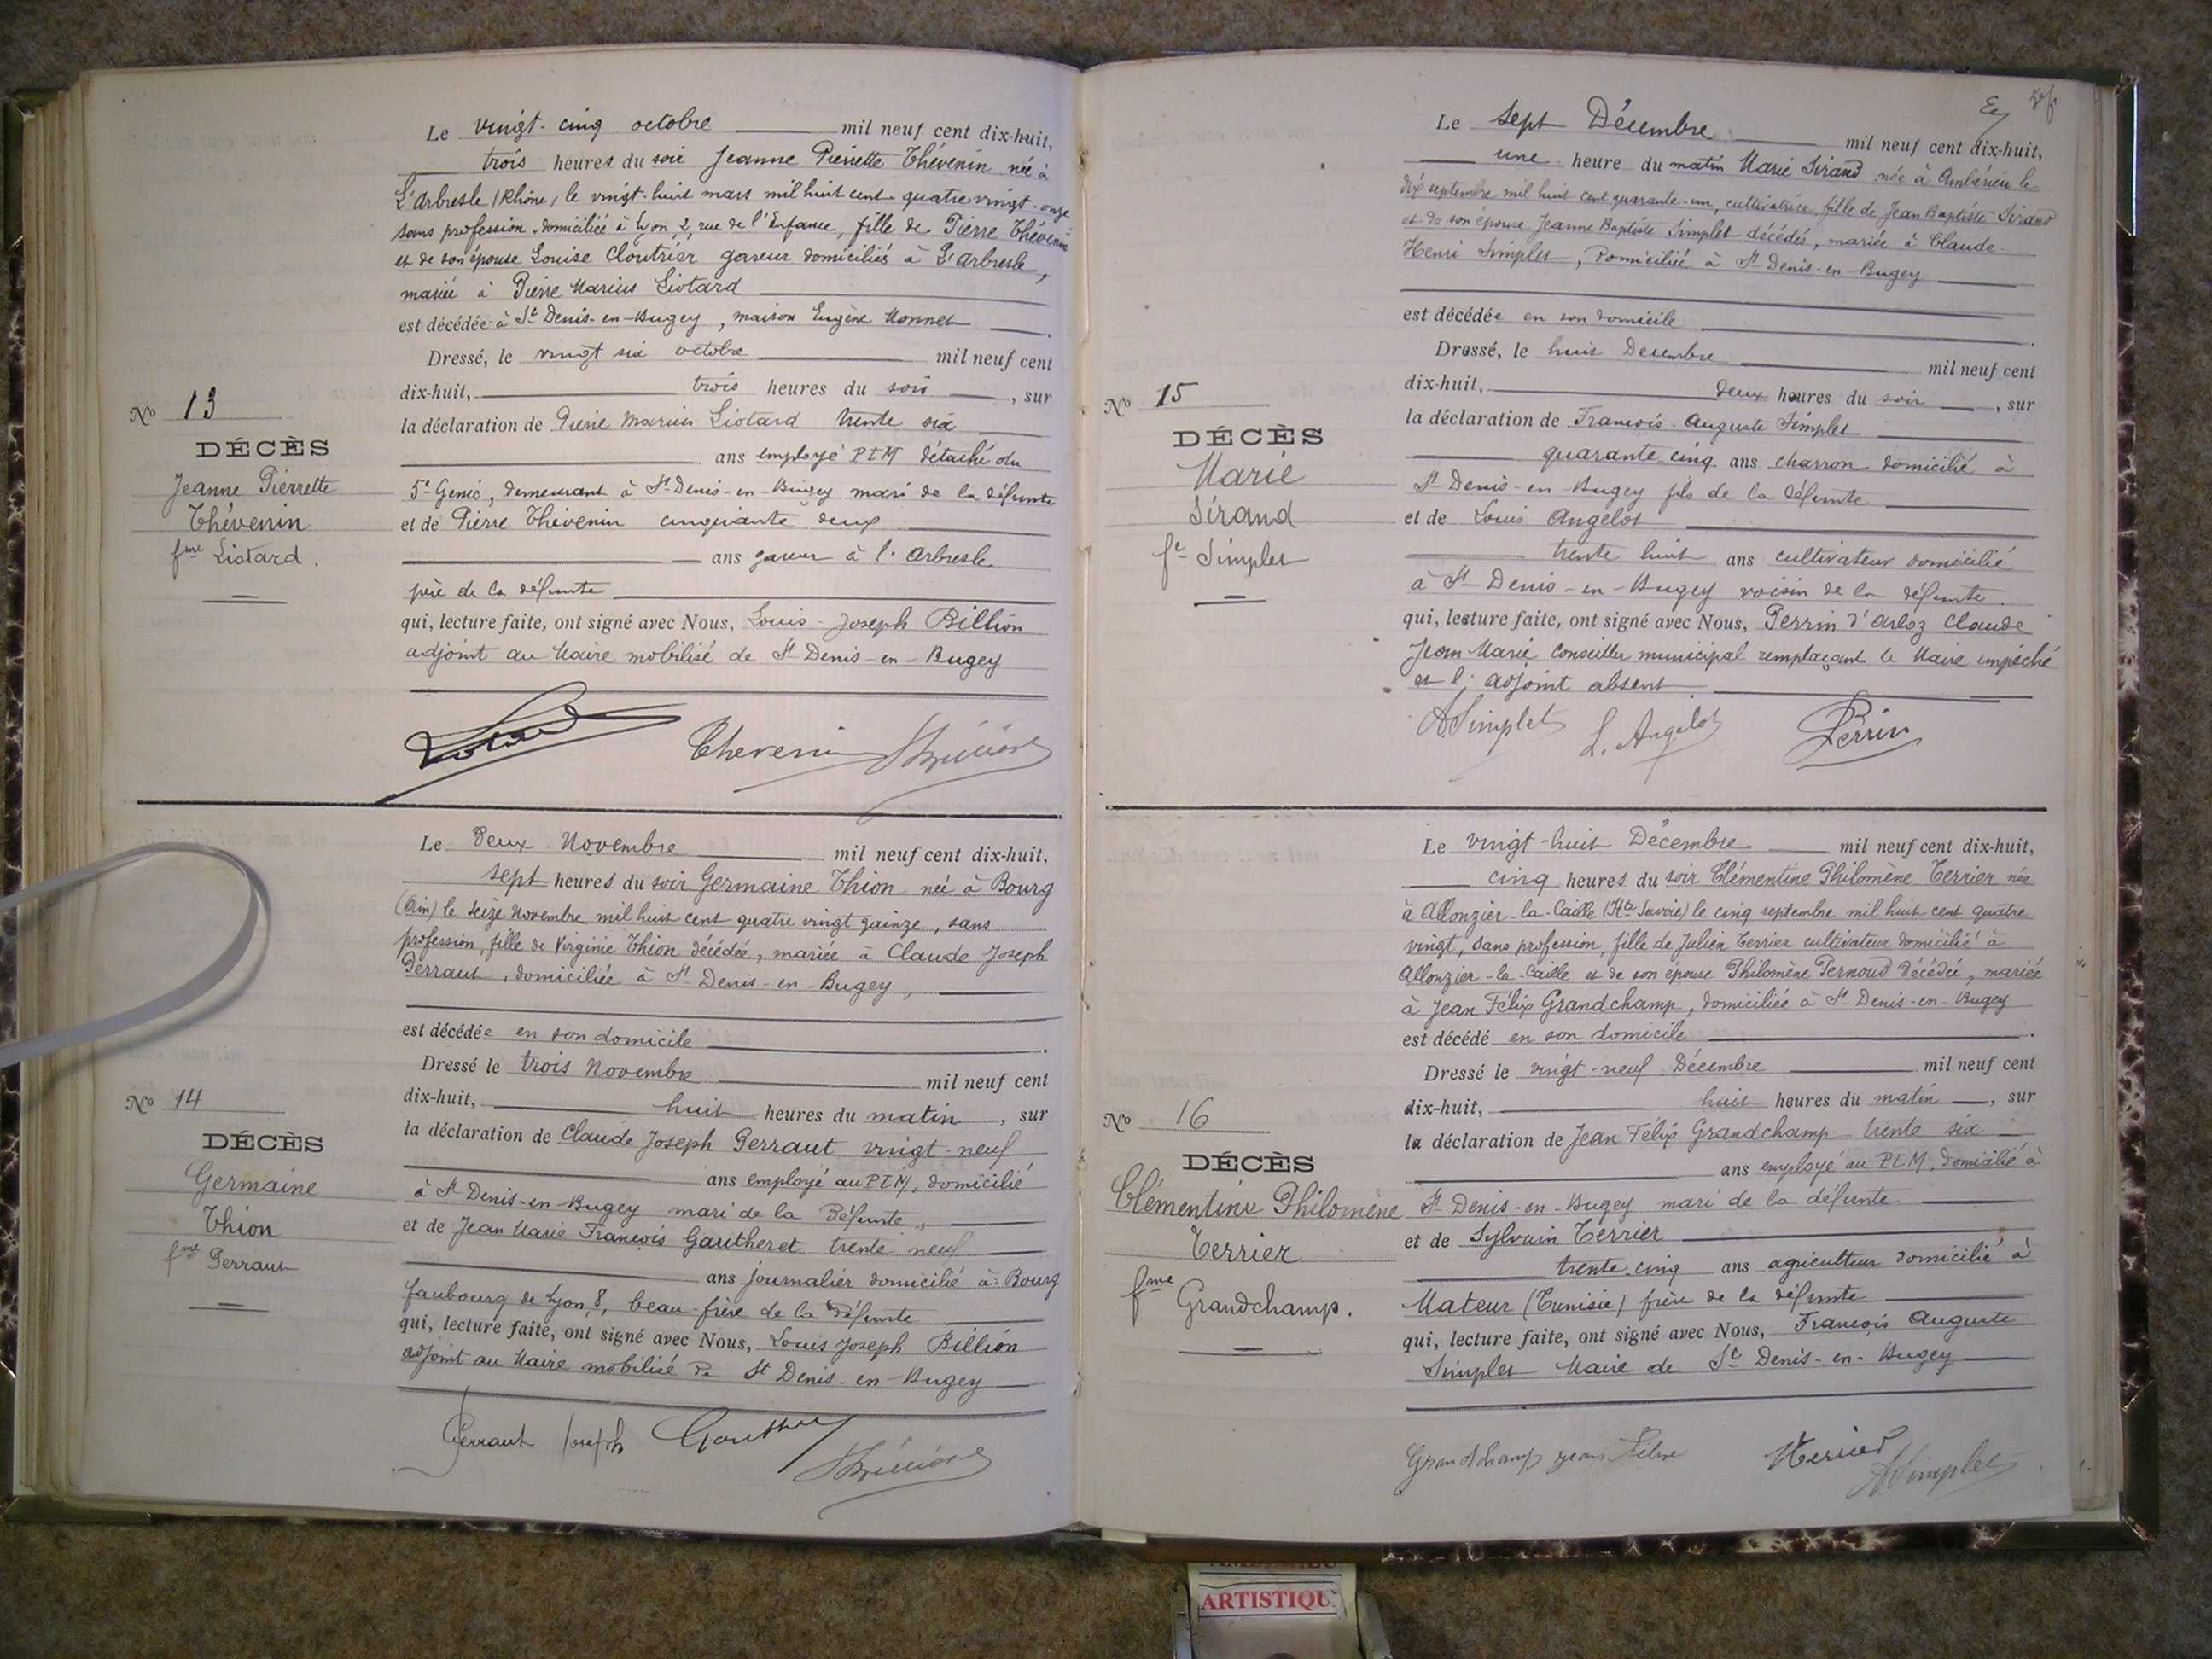 Le vingt-cinq octobre mil neuf cent dix-huit,
trois heures du soir Jeanne Pierrette Thévenin née à
L'Arbresle (Rhône) le vingt-huit mars mil huit cent quatre vingt-onze
sans profession domiciliée à Lyon, 2, rue de l'Enfance, fille de Pierre Thévenin
et de son épouse Louise Cloutrier gareur domiciliés à L'Arbresle,
mariée à Pierre Marius Liotard
est décédée à St Denis-en-Bugey, maison Eugène Monnet
Dressé, le vingt six octobre mil neuf cent
dix-huit, trois heures du soir, sur
la déclaration de Pierre Marius Liotard trente six
ans employé PLM détaché du
5e Génie, demeurant à St Denis-en-Bugey mari de la défunte
et de Pierre Thévenin cinquante deux
ans gareur à l'Arbresle
père de la défunte
qui, lecture faite, ont signé avec Nous, Louis-Joseph Billion
adjoint au Maire mobilisé de St Denis-en-Bugey
Thevenin
No 13
DÉCÈS
Jeanne Pierrette
Thévenin
fme Liotard.
Le deux Novembre mil neuf cent dix-huit,
sept heures du soir Germaine Thion née à Bourg
(Ain) le seize Novembre mil huit cent quatre vingt quinze, sans
profession, fille de Virginie Thion décédée, mariée à Claude Joseph
Perraut, domiciliée à St Denis-en-Bugey,
est décédée en son domicile.
Dressé le trois Novembre mil neuf cent
dix-huit, huit heures du matin, sur
la déclaration de Claude Joseph Perraut vingt-neuf
ans employé au PLM, domicilié
à St Denis-en-Bugey mari de la défunte,
et de Jean Marie François Gautheret trente neuf
ans journalier domicilié à Bourg
faubourg de Lyon, 8, beau-frère de la défunte
qui, lecture faite, ont signé avec Nous, Louis Joseph Billion
adjoint au Maire mobilisé de St Denis-en-Bugey
Perraut Joseph
No 14
DÉCÈS
Germaine
Thion
fme Perraut
Le sept Décembre mil neuf cent dix-huit,
une heure du matin Marie Sirand née à Ambérieu le
dix septembre mil huit cent quarante-un, cultivatrice, fille de Jean Baptiste Sirand
et de son épouse Jeanne Baptiste Simplet décédés, mariée à Claude
Henri Simplet, domiciliée à St Denis-en-Bugey
est décédée en son domicile.
Dressé, le huit Décembre mil neuf cent
dix-huit, deux heures du soir, sur
la déclaration de François-Auguste Simplet
quarante cinq ans charron domicilié à
St Denis-en-Bugey fils de la défunte
et de Louis Angelot
trente huit ans cultivateur domicilié
à St Denis-en-Bugey voisin de la défunte.
qui, lecture faite, ont signé avec Nous, Perrin d'Arloz Claude
Jean-Marie Conseiller municipal remplaçant le Maire empêché
et l'adjoint absent
A Simplet L. Angelot Perrin
No 15
DÉCÈS
Marie
Sirand
fe Simplet
Le vingt-huit Décembre mil neuf cent dix-huit,
cinq heures du soir Clémentine Philomène Terrier née
à Allonzier-la-Caille (Hte Savoie) le cinq septembre mil huit cent quatre
vingt, sans profession, fille de Julien Terrier cultivateur domicilié à
Allonzier-la-Caille et de son épouse Philomène Pernoud décédée, mariée
à Jean Félix Grandchamp, domiciliée à St Denis-en-Bugey
est décédé en son domicile.
Dressé le vingt-neuf Décembre mil neuf cent
dix-huit, huit heures du matin, sur
la déclaration de Jean Félix Grandchamp trente six
ans employé au PLM, domicilié à
St Denis-en-Bugey mari de la défunte
et de Sylvain Terrier
trente-cinq ans agriculteur domicilié à
Mateur (Tunisie) frère de la défunte
qui, lecture faite, ont signé avec Nous, François Auguste
Simplet Maire de St Denis-en-Bugey
Grandchamp jean A Simplet
No 16
DÉCÈS
Clémentine Philomène
Terrier
fme Grandchamp.
ARTISTIQU